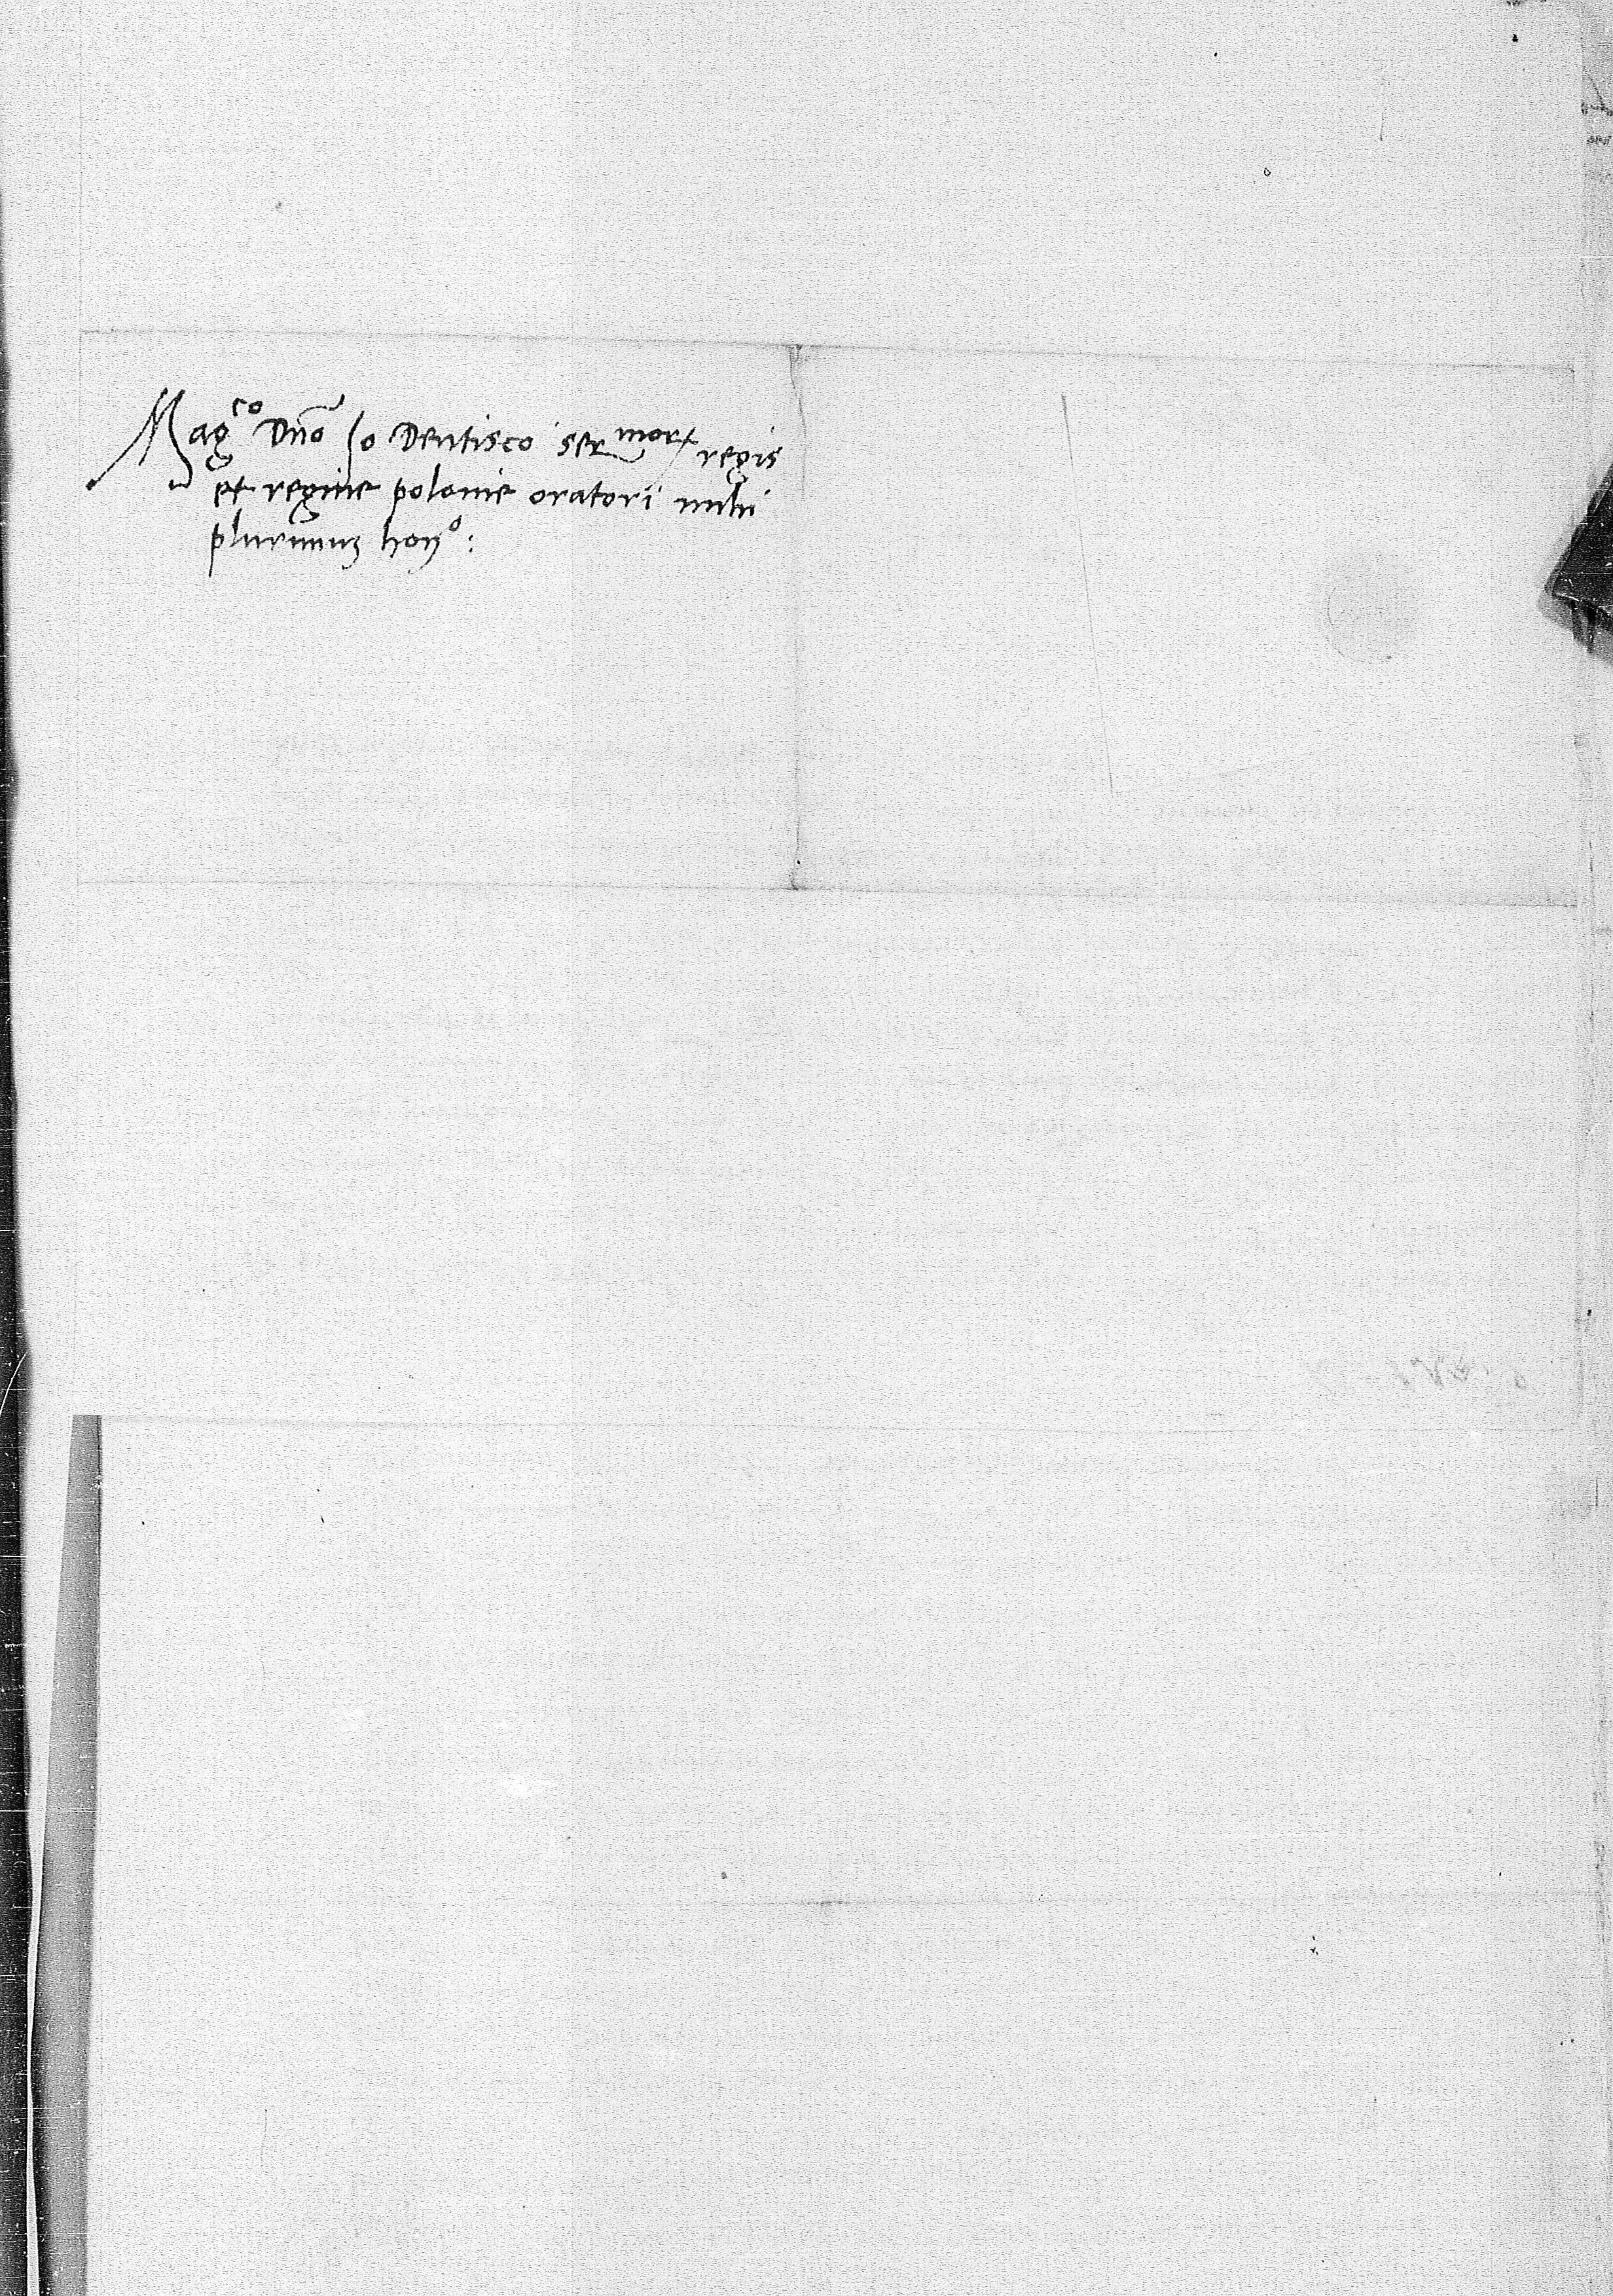 Mag^co Dño Jo Dentisco ser^morum regis
et regine polonie oratori mihi
plurimum hon^o: